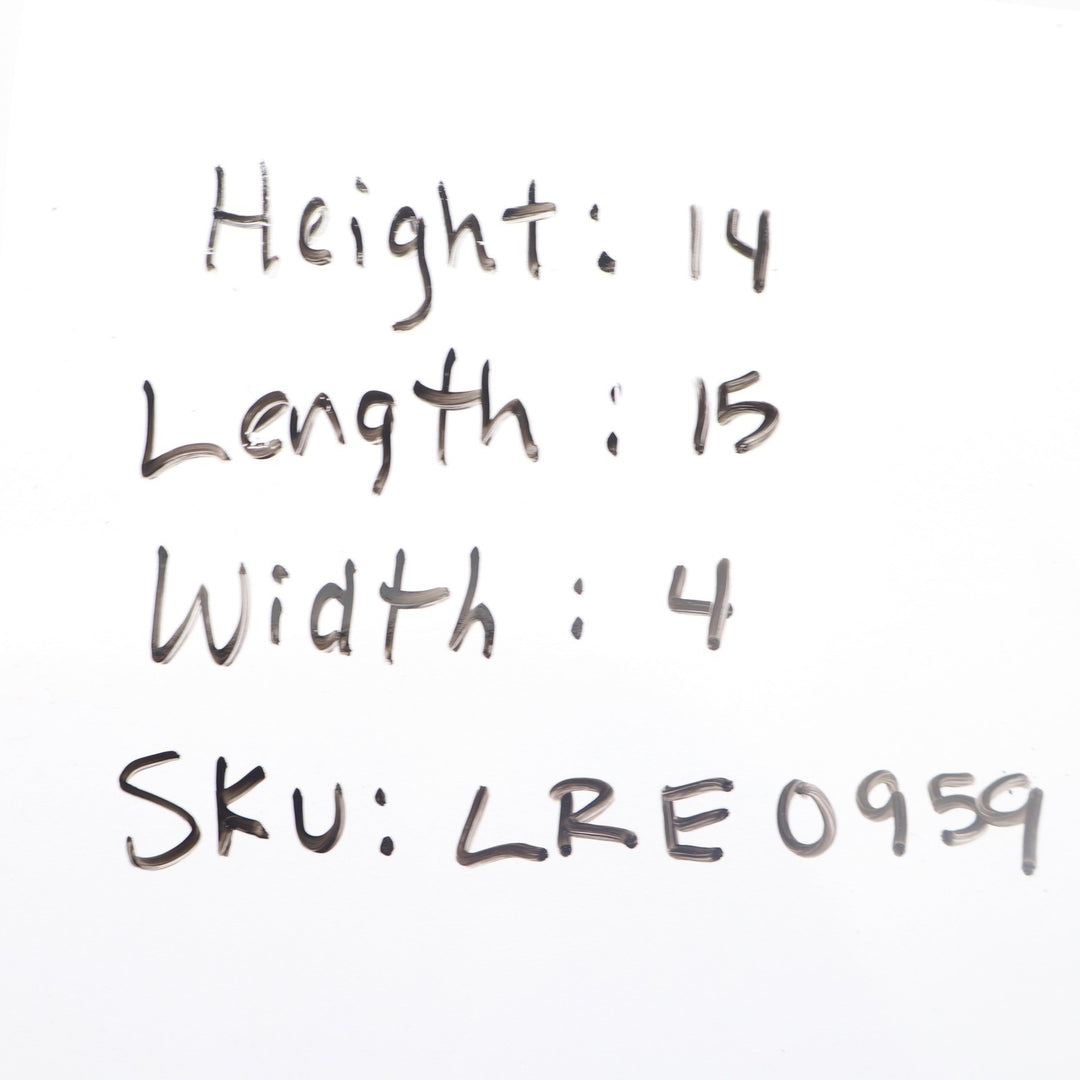 Height: 14
Length: 15
Width: 4
SKU: LRE0959